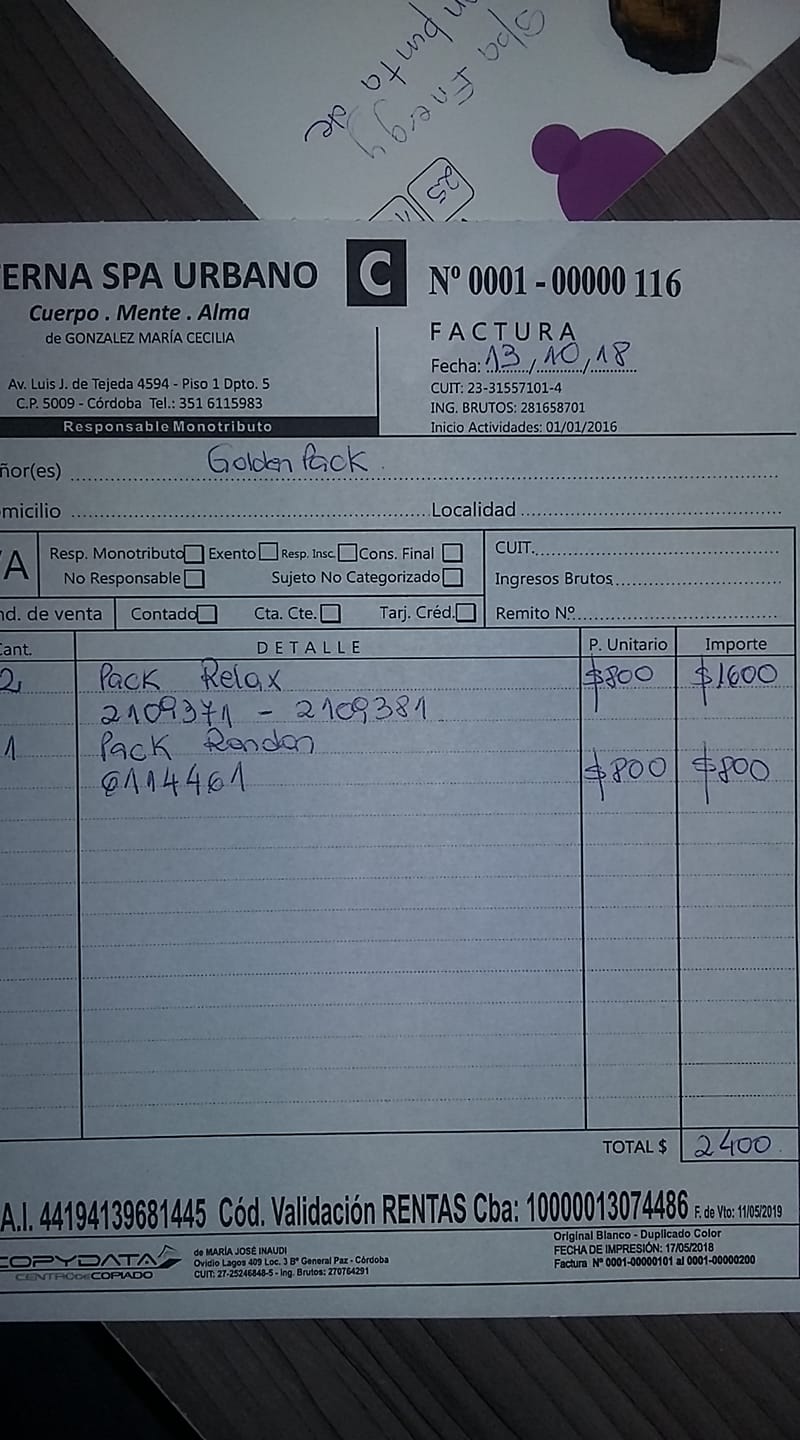 n punta de
Spa Energy
25
ERNA SPA URBANO
C
Nº 0001 - 00000 116
Cuerpo . Mente . Alma
de GONZALEZ MARÍA CECILIA
FACTURA
Fecha: 13/10/18
Av. Luis J. de Tejeda 4594 - Piso 1 Dpto. 5
C.P. 5009 - Córdoba Tel.: 351 6115983
Responsable Monotributo
CUIT: 23-31557101-4
ING. BRUTOS: 281658701
Inicio Actividades: 01/01/2016
ñor(es) Golden Pack
micilio Localidad
VA Resp. Monotributo Exento Resp. Insc. Cons. Final CUIT.
No Responsable Sujeto No Categorizado Ingresos Brutos
nd. de venta Contado Cta. Cte. Tarj. Créd. Remito Nº
Cant. DETALLE P. Unitario Importe
2 Pack Relax $800 $1600
2109371 - 2109381
1 Pack Random
6114461 $800 $800
TOTAL $ 2400
A.I. 44194139681445 Cód. Validación RENTAS Cba: 10000013074486 F. de Vto: 11/05/2019
COPYDATA
CENTRO DE COPIADO
de MARÍA JOSÉ INAUDI
Ovidio Lagos 409 Loc. 3 Bº General Paz - Córdoba
CUIT: 27-25246848-5 - Ing. Brutos: 270764291
Original Blanco - Duplicado Color
FECHA DE IMPRESIÓN: 17/05/2018
Factura Nº 0001-00000101 al 0001-00000200